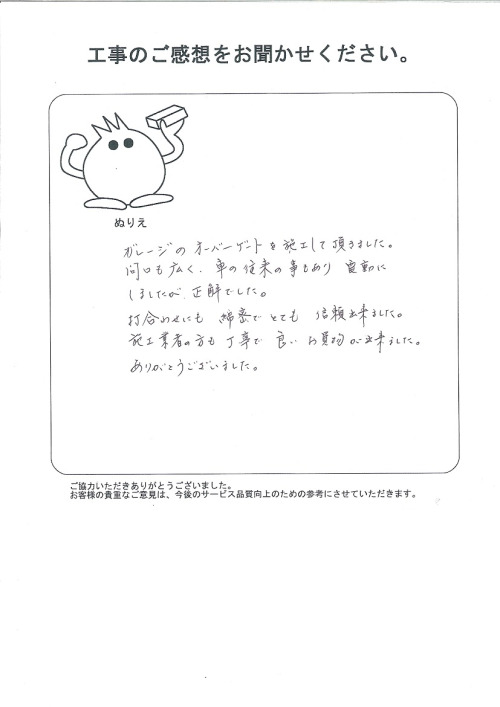 工事のご感想をお聞かせください。
ぬりえ
ガレージのオーバーゲートを施工して頂きました。
間口も広く、車の往来の事もあり電動に
しましたが、正解でした。
打合わせにも綿密でとても信頼出来ました。
施工業者の方も丁寧で良いお買物が出来ました。
ありがとうございました。
ご協力いただきありがとうございました。
お客様の貴重なご意見は、今後のサービス品質向上のための参考にさせていただきます。